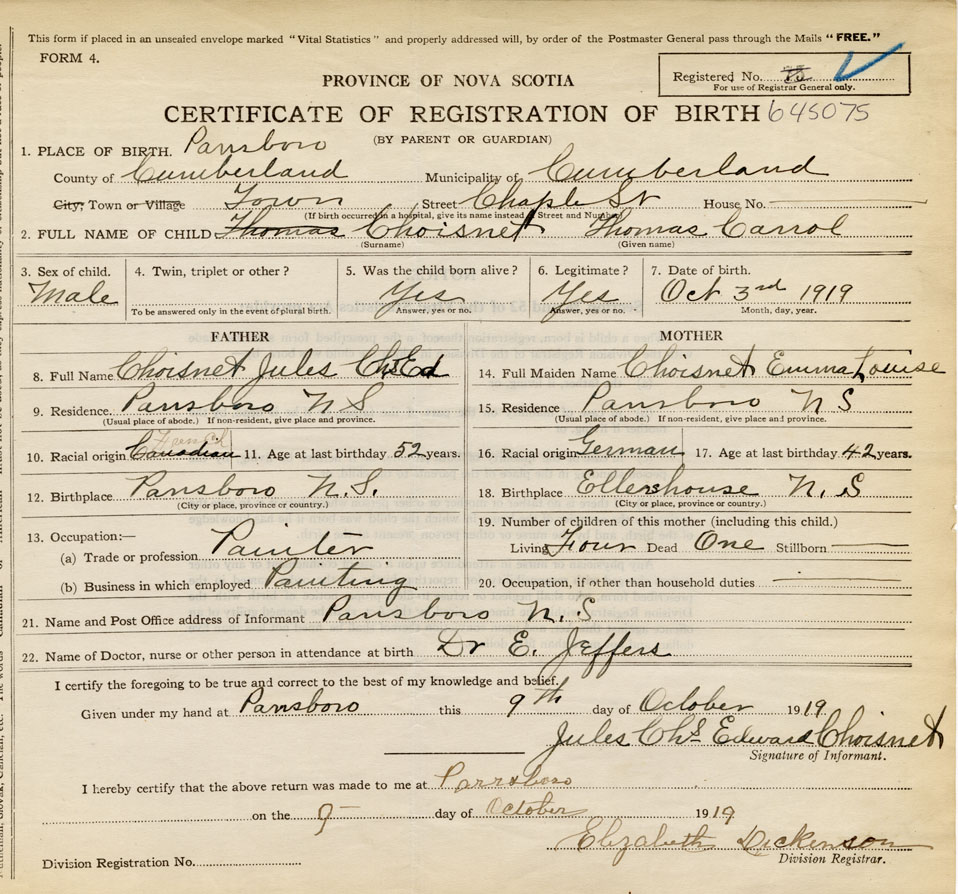 This form if placed in an unsealed envelope marked "Vital Statistics" and properly addressed will, by order of the Postmaster General pass through the Mails "FREE."
FORM 4.
Registered No.
For use of Registrar General only.
PROVINCE OF NOVA SCOTIA
CERTIFICATE OF REGISTRATION OF BIRTH 645075
(BY PARENT OR GUARDIAN)
1. PLACE OF BIRTH. Parrsboro
County of Cumberland Municipality of Cumberland
City: Town or Village Town Street Chaple St House No.
(If birth occurred in a hospital, give its name instead of Street and Number)
2. FULL NAME OF CHILD Thomas Choisnet Thomas Carrol
(Surname) (Given name)
3. Sex of child. 4. Twin, triplet or other? 5. Was the child born alive? 6. Legitimate? 7. Date of birth.
Male Yes Yes Oct 3rd 1919
To be answered only in the event of plural birth. Answer, yes or no. Answer, yes or no. Month, day, year.
FATHER MOTHER
8. Full Name Choisnet Jules Chs Ed 14. Full Maiden Name Choisnet Emma Louise
9. Residence. Parrsboro N S 15. Residence Parrsboro N S
(Usual place of abode.) If non-resident, give place and province. (Usual place of abode.) If non-resident, give place and province.
French
10. Racial origin Canadian 11. Age at last birthday 52 years. 16. Racial origin German 17. Age at last birthday 42 years.
12. Birthplace Parrsboro N.S. 18. Birthplace Ellershouse N. S
(City or place, province or country.) (City or place, province or country.)
13. Occupation:— 19. Number of children of this mother (including this child.)
(a) Trade or profession Painter Living Four Dead One Stillborn
(b) Business in which employed Painting 20. Occupation, if other than household duties
21. Name and Post Office address of Informant Parrsboro N. S
22. Name of Doctor, nurse or other person in attendance at birth Dr E. Jeffers
I certify the foregoing to be true and correct to the best of my knowledge and belief.
Given under my hand at Parrsboro this 9th day of October 1919
Jules Chs Edward Choisnet
Signature of Informant.
I hereby certify that the above return was made to me at Parrsboro
on the 9 day of October 1919
Elizabeth Dickenson
Division Registrar.
Division Registration No.